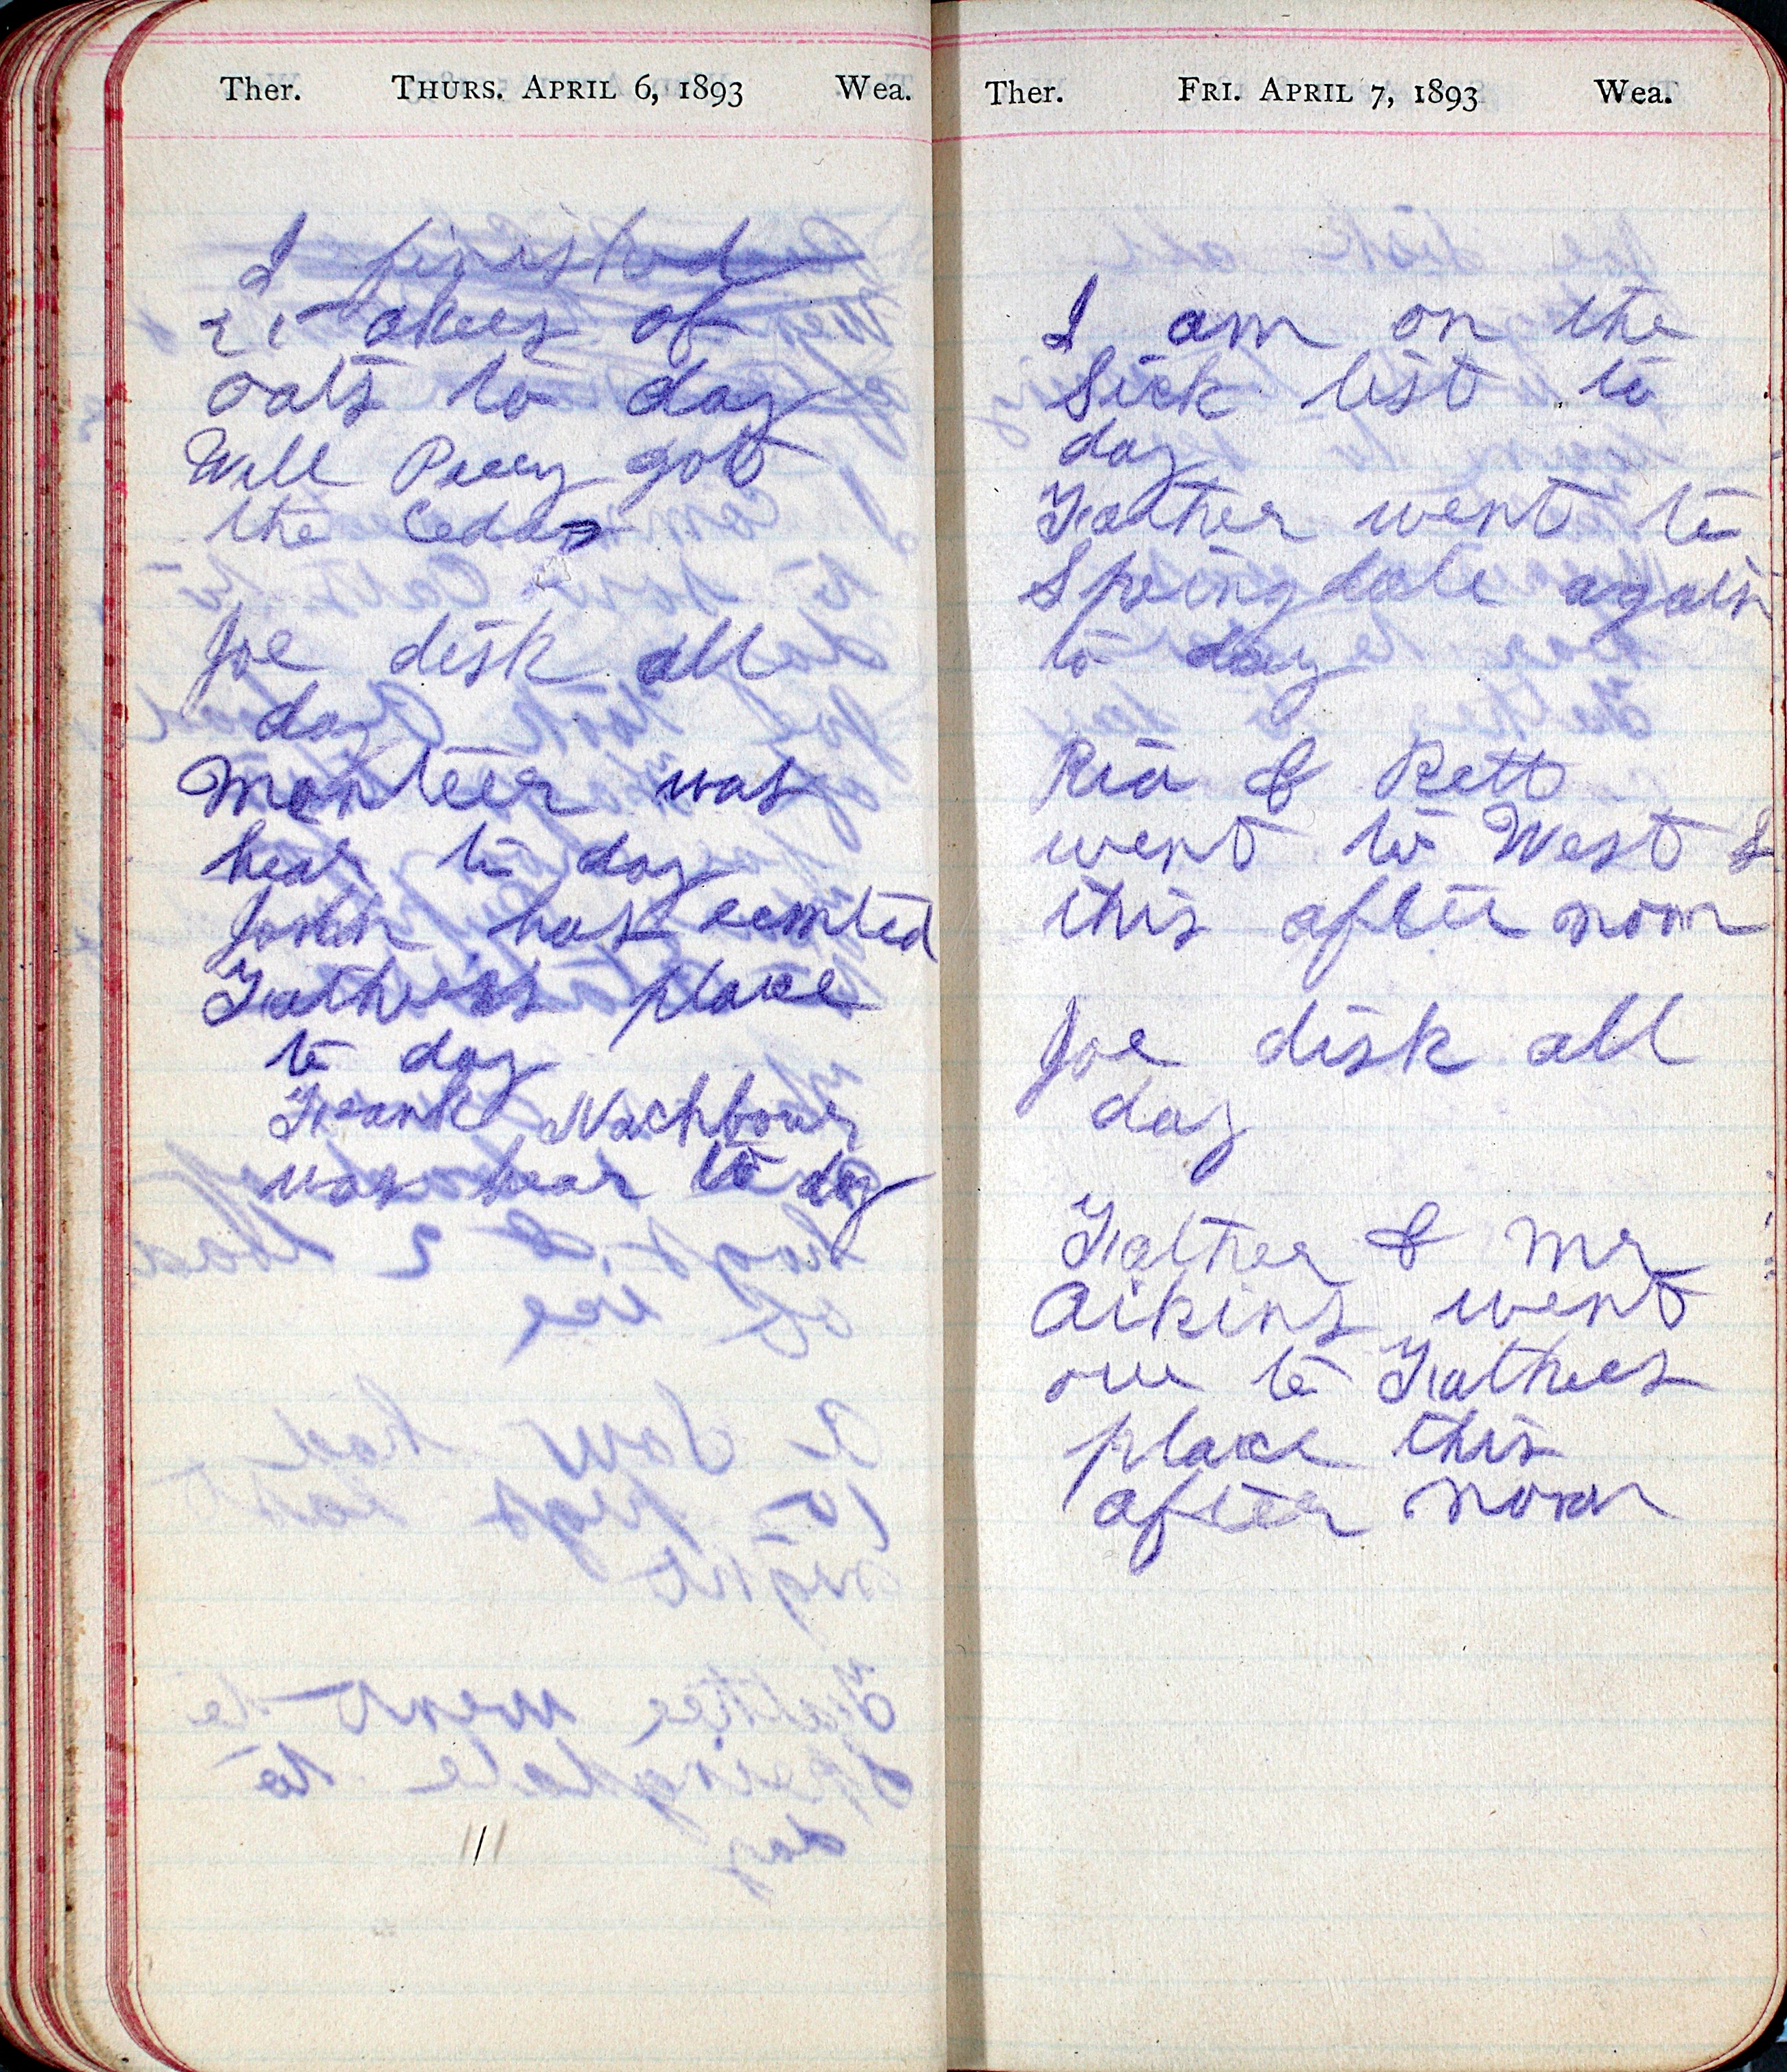 Ther. THURS. APRIL 6, 1893 Wea.
I finished
25 akers of
oats to day
Will Perry got
the Cedar
Joe disk all
day
Monteer was
hear to day
John has rented
Fathers place
to day
Frank Nachbour
was hear to day
Ther. FRI. APRIL 7, 1893 Wea.
I am on the
Sick list to
day
Father went to
Springdale again
to day
Ria & Rett
went to West
this after noon
Joe disk all
day
Father & Mr
Aikins went
over to Fathers
place this
after noon